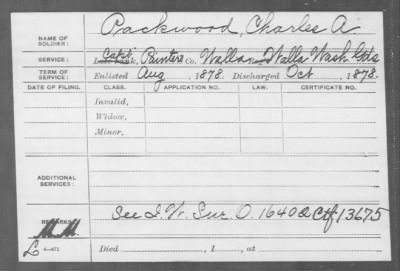 NAME OF SOLDIER: Packwood, Charles A.
SERVICE: Late rank, Capt. Painters Co. Walla Walla Wash Gds
TERM OF SERVICE: Enlisted Aug, 1878. Discharged Oct, 1878.
DATE OF FILING. CLASS. APPLICATION NO. LAW. CERTIFICATE NO.
Invalid,
Widow,
Minor,
ADDITIONAL SERVICES:
REMARKS: See I. W. Sur. O. 16402 Ctf 13675
MM
L 6-472
Died , 1 , at